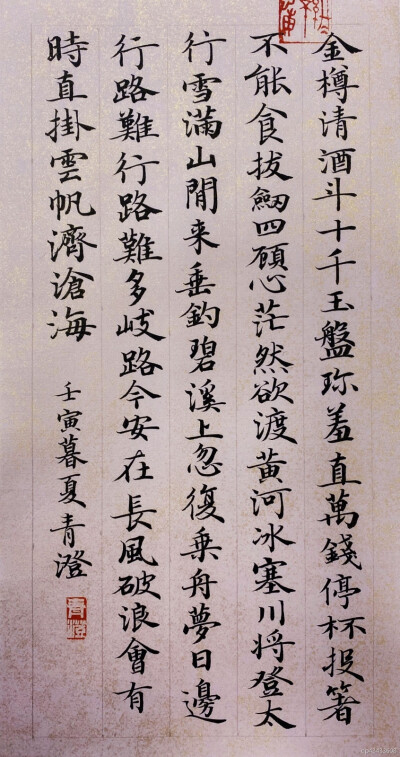 金樽清酒斗十千玉盤珎羞直萬錢停杯投箸
不能食拔劒四顧心茫然欲渡黄河冰塞川将登太
行雪滿山閒来垂釣碧溪上忽復乗舟夢日邊
行路難行路難多歧路今安在長風破浪會有
時直掛雲帆濟滄海
壬寅暮夏青澄
青澄